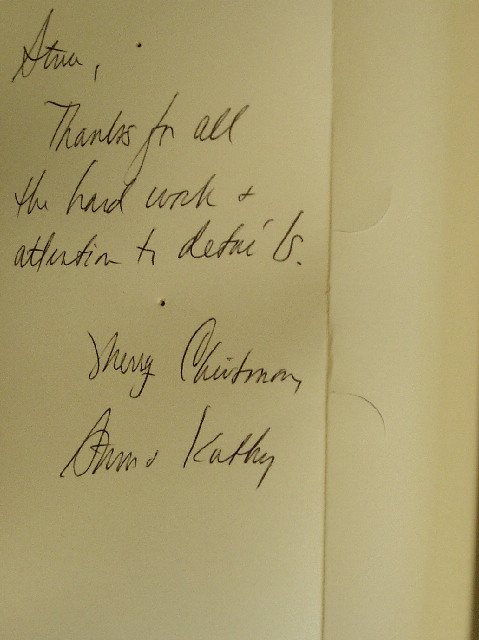 Steve,
Thanks for all
the hard work +
attention to details.
Merry Christmas,
Kathy